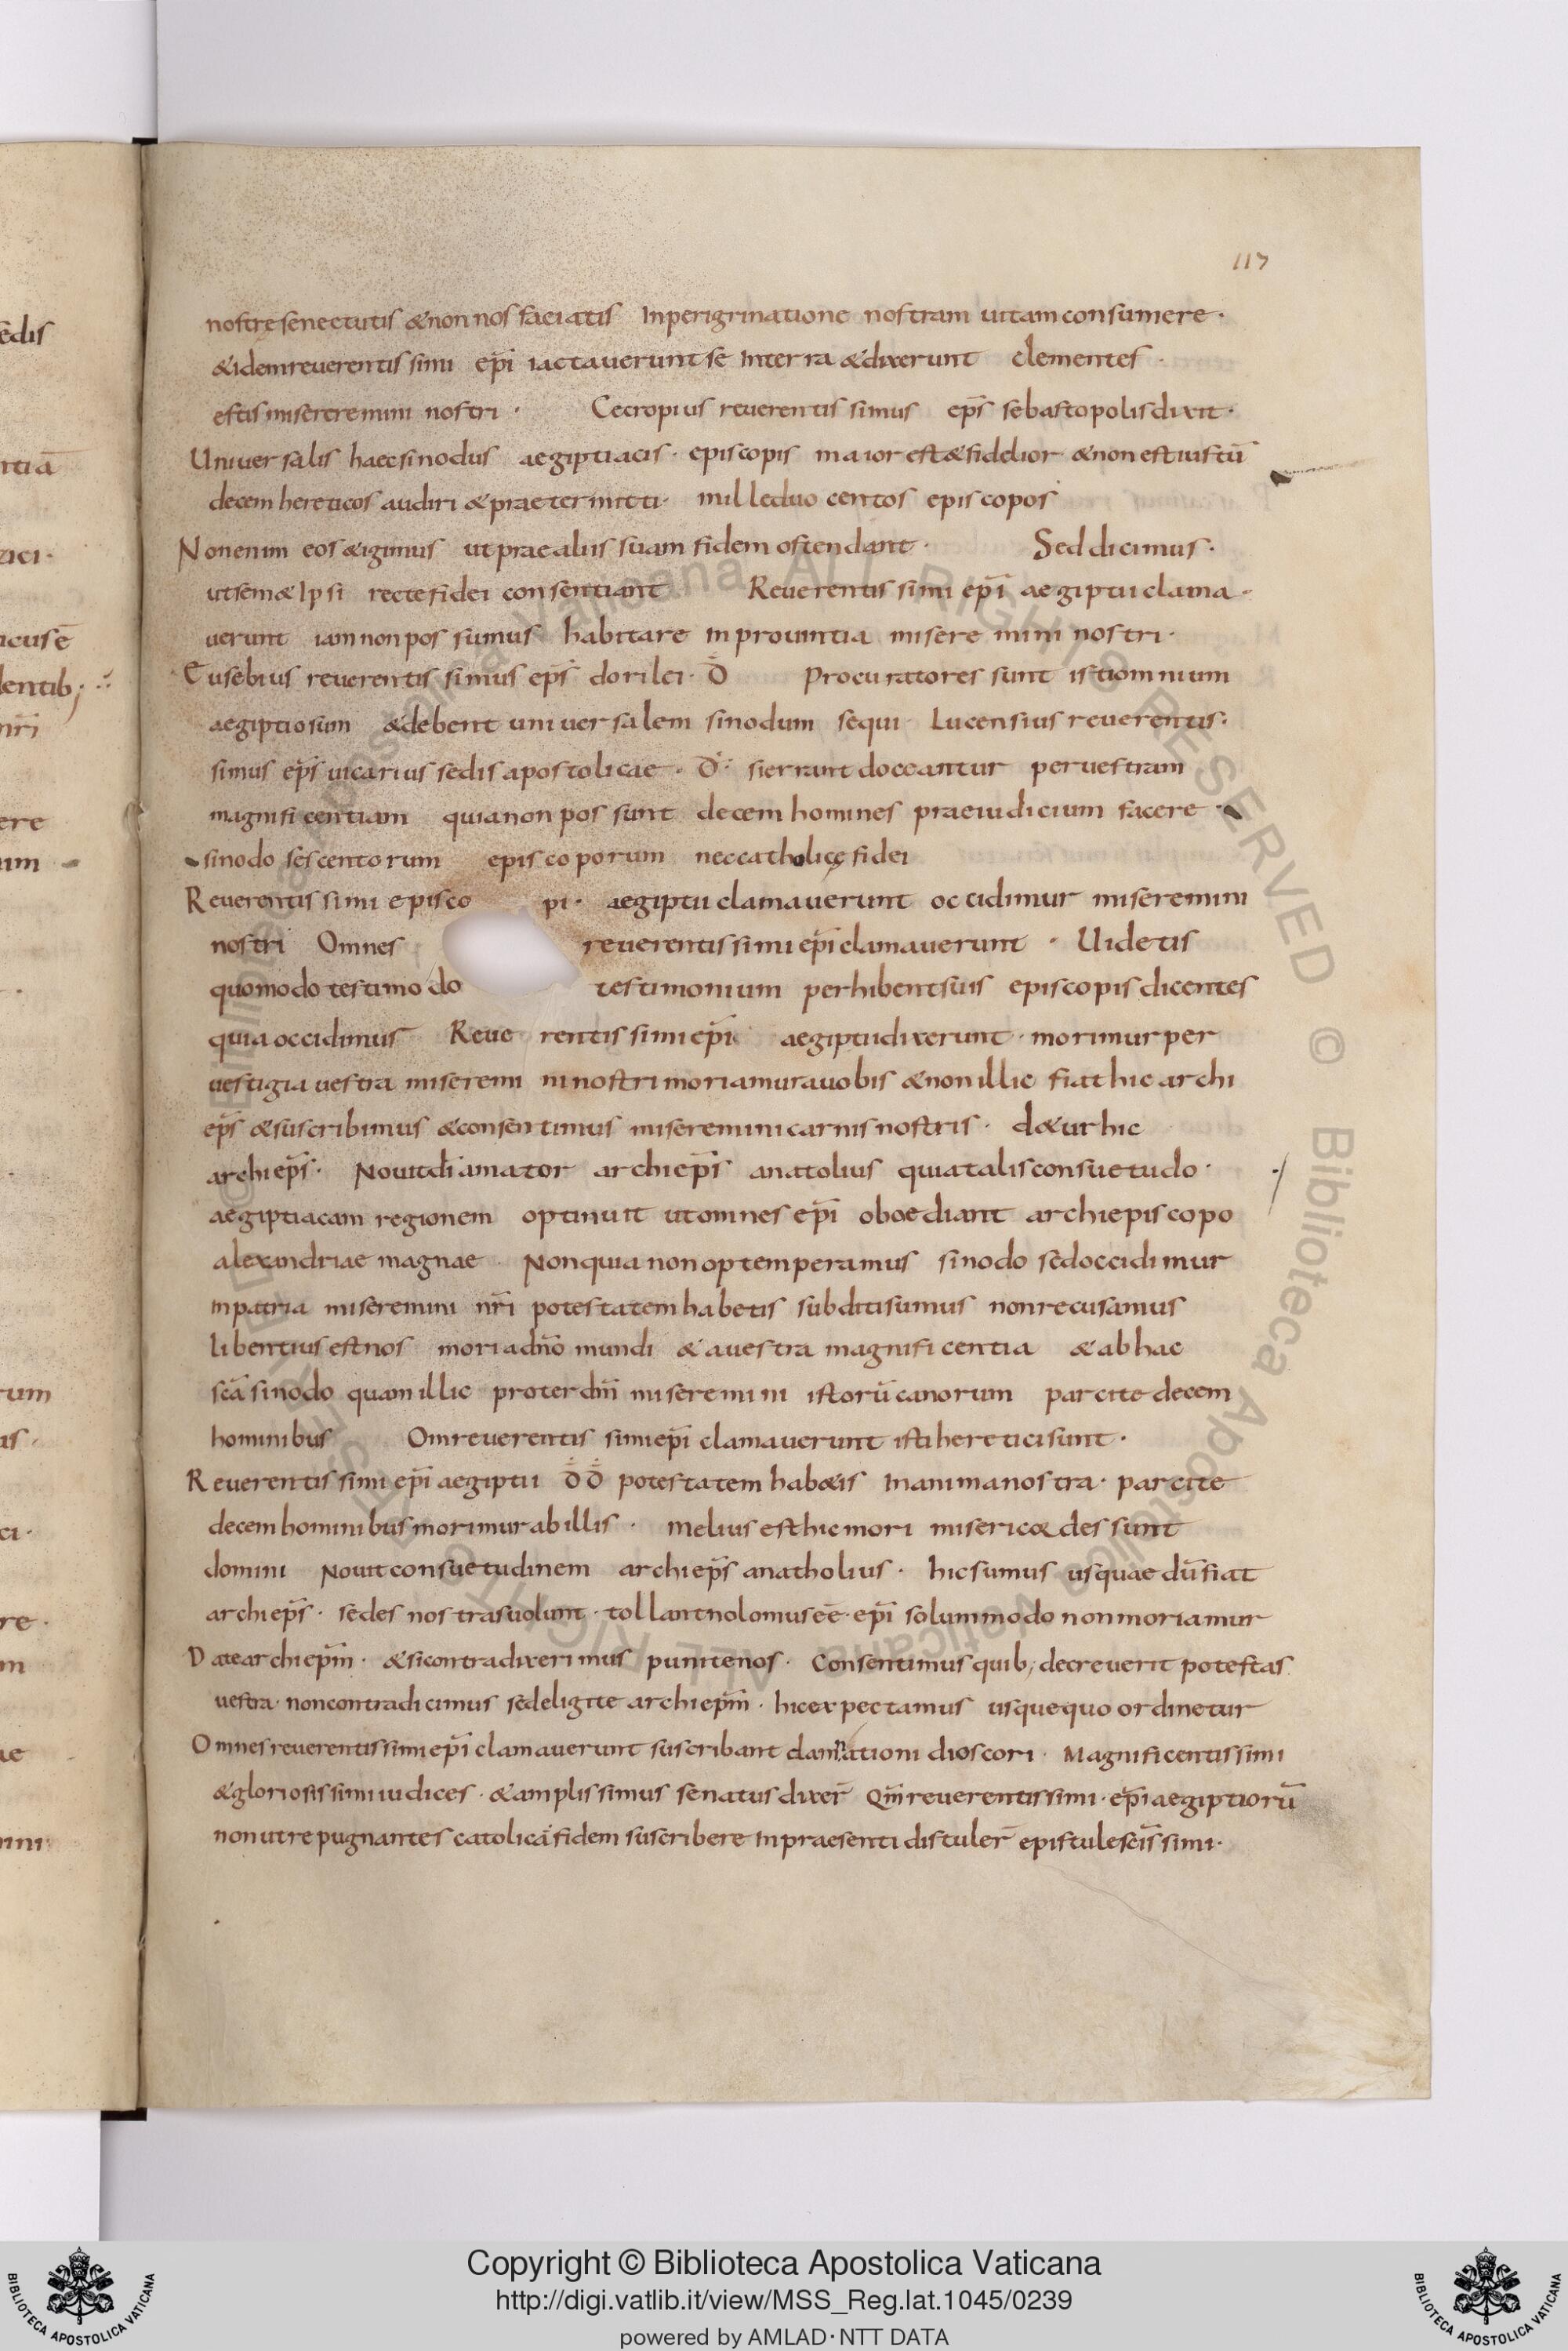 117
nostrę senectutis & non nos faciatis Inperigrinatione nostram uitam consumere ·
& idem reuerentissimi ep̄i iactauerunt se Inter ra & dixerunt clementes ·
estis miseremini nostri · Cecropius reuerentissimus ep̄s sebastopolis dixit ·
Uniuersalis haec sinodus aegiptiacis · episcopis maior est & fidelior & non est iustū
decem hereticos audiri & praetermitti · mille duo centos episcopos
Non enim eos &igimus ut prae aliis suam fidem ostendant · Sed dicimus ·
ut sem& Ipsi recte fidei consentiant Reuerentissimi ep̄i aegiptii clama ·
uerunt iam non possumus habitare In prouintia miseremini nostri ·
Eusebius reuerentissimus ep̄s dorilei · D̄ Procuratores sunt isti omnium
aegiptiosum & debent uniuersalem sinodum sequi · Lucensius reuerentis ·
simus ep̄s uicarius sedis apostolicae · D̄ · si errant doceantur per uestram
magnificentiam quia non possunt decem homines praeiudicium facere ·
sinodo sescentorum episcoporum nec catholicę fidei
Reuerentissimi episco pi · aegiptii clamauerunt occidimur miseremini
nostri Omnes reuerentissimi ep̄i clamauerunt · Uidetis
quomodo testimo do testimonium perhibent suis episcopis dicentes
quia occidimus Reue rentissimi ep̄i aegiptii dixerunt · morimur per
uestigia uestra miseremi ni nostri moriamur a uobis & non illic fiat hic archi
ep̄s & suscribimus & consentimus miseremini carnis nostris · d&ur hic
archiep̄s · Nouit di amator archiep̄s anatolius quia talis consuetudo ·
aegiptiacam regionem optinuit ut omnes ep̄i oboediant archiepiscopo
alexandriae magnae · Non quia non optemperamus sinodo sed occidimur
In patria miseremini nr̄i potestatem habetis subditi sumus non recusamus
libentius est nos mori a dn̄o mundi & a uestra magnificentia & ab hac
sc̄a sinodo quam illic propter dm̄ miseremini istorū canorum parcite decem
hominibus Om̄ reuerentissimi ep̄i clamauerunt isti heretici sunt ·
Reuerentissimi ep̄i aegiptii D̄D̄ potestatem hab&is In anima nostra · parcite
decem hominibus morimur ab illis · melius est hic mori misericordes sunt
domini Nouit consuetudinem archiep̄s anatholius · hic sumus usquae dū fiat
archiep̄s · sedes nostras uolunt · tollant nolomus eē · ep̄i solummodo non moriamur
Date archiep̄m · & si contradixerimus punite nos · Consentimus quib; decreuerit potestas
uestra · non contradicimus sed eligite archiep̄m · hic expectamus usquequo ordinetur
Omnes reuerentissimi ep̄i clamauerunt suscribant damnationi dioscori · Magnificentissimi
& gloriosissimi iudices · & amplissimus senatus dixer̄ Qm̄ reuerentissimi · ep̄i aegiptiorū
non ut repugnantes catolicā fidem suscribere In praesenti distuler̄ epistule sc̄issimi ·
Copyright © Biblioteca Apostolica Vaticana
http://digi.vatlib.it/view/MSS_Reg.lat.1045/0239
powered by AMLAD·NTT DATA